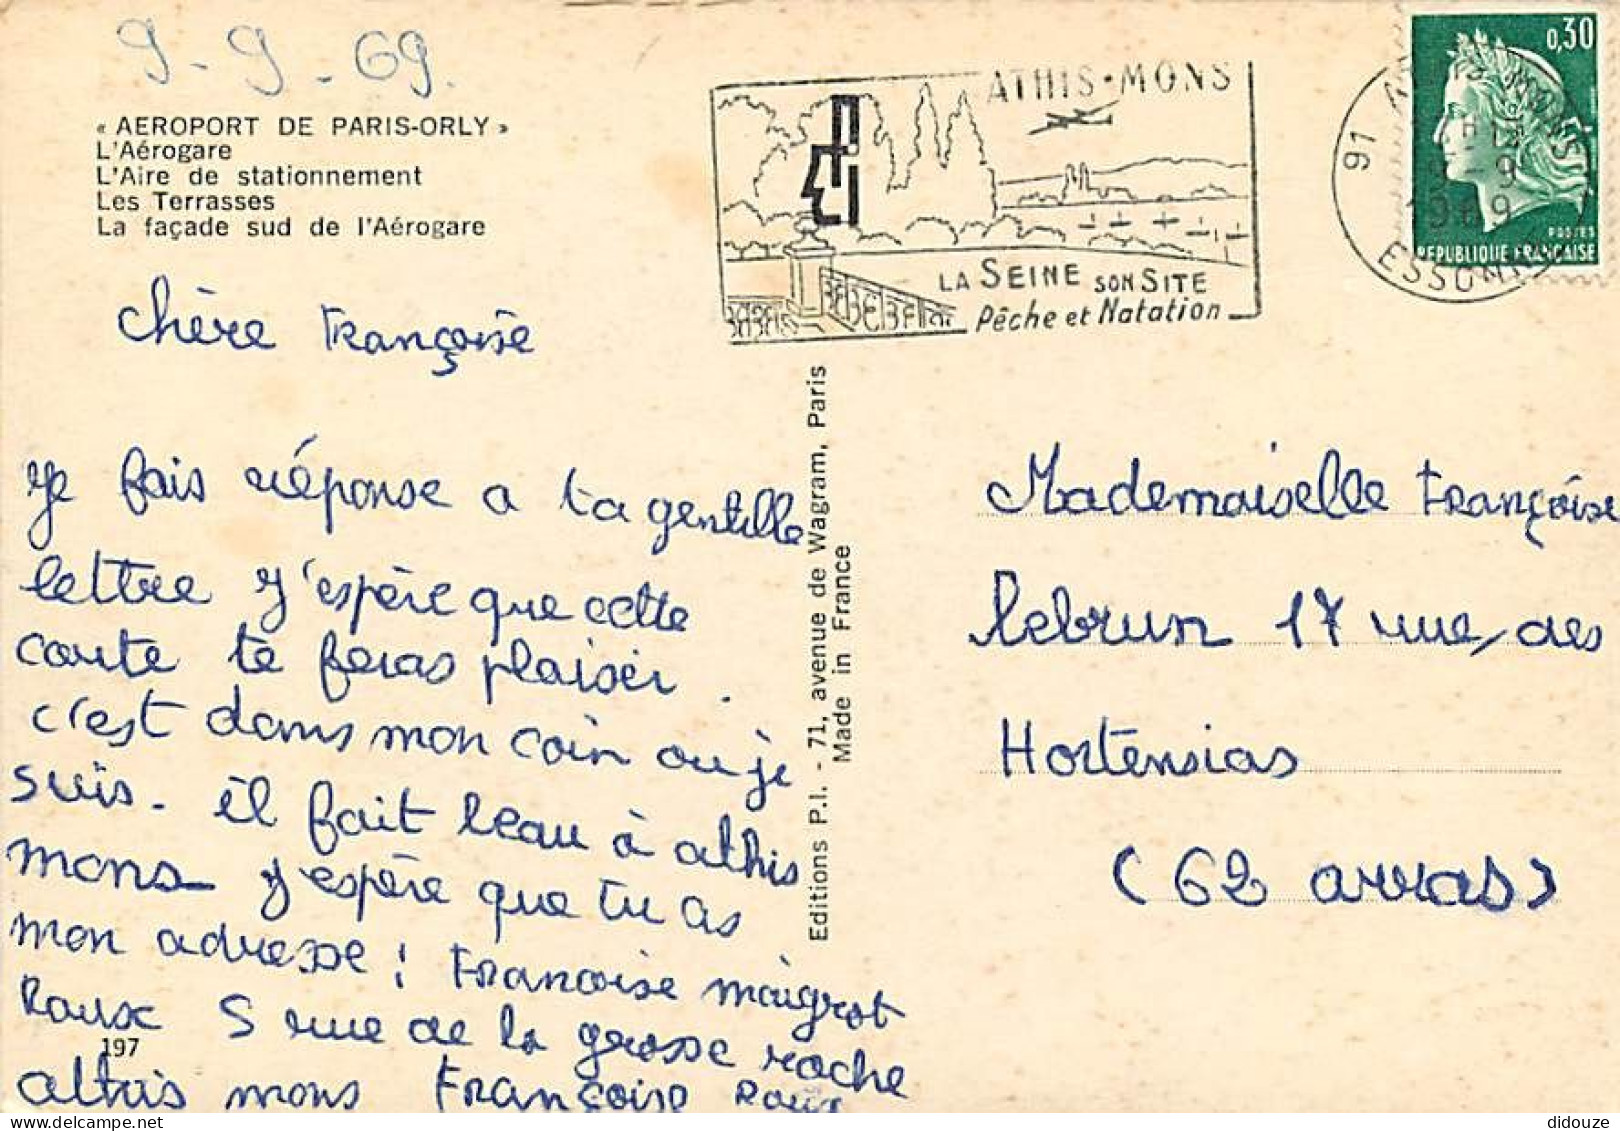 9-9-69.
« AEROPORT DE PARIS-ORLY »
L'Aérogare
L'Aire de stationnement
Les Terrasses
La façade sud de l'Aérogare
ATHIS-MONS
LA SEINE SON SITE
Pêche et Natation
0,30
POSTES
REPUBLIQUE FRANÇAISE
91 ATHIS-MONS
9-9
1969
ESSONNE
chère Françoise
Je fais réponse a ta gentille
lettre J'espère que cette
carte te feras plaisir.
c'est dans mon coin ou je
suis. il fait beau à athis
mons. J'espère que tu as
mon adresse : Francoise maigrot
Roux 5 rue de la grosse roche
athis mons Françoise Roux
197
Editions P.I. - 71, avenue de Wagram, Paris
Made in France
Mademoiselle Françoise
lebrun 17 rue, des
Hortensias
(62 arras)
didouze